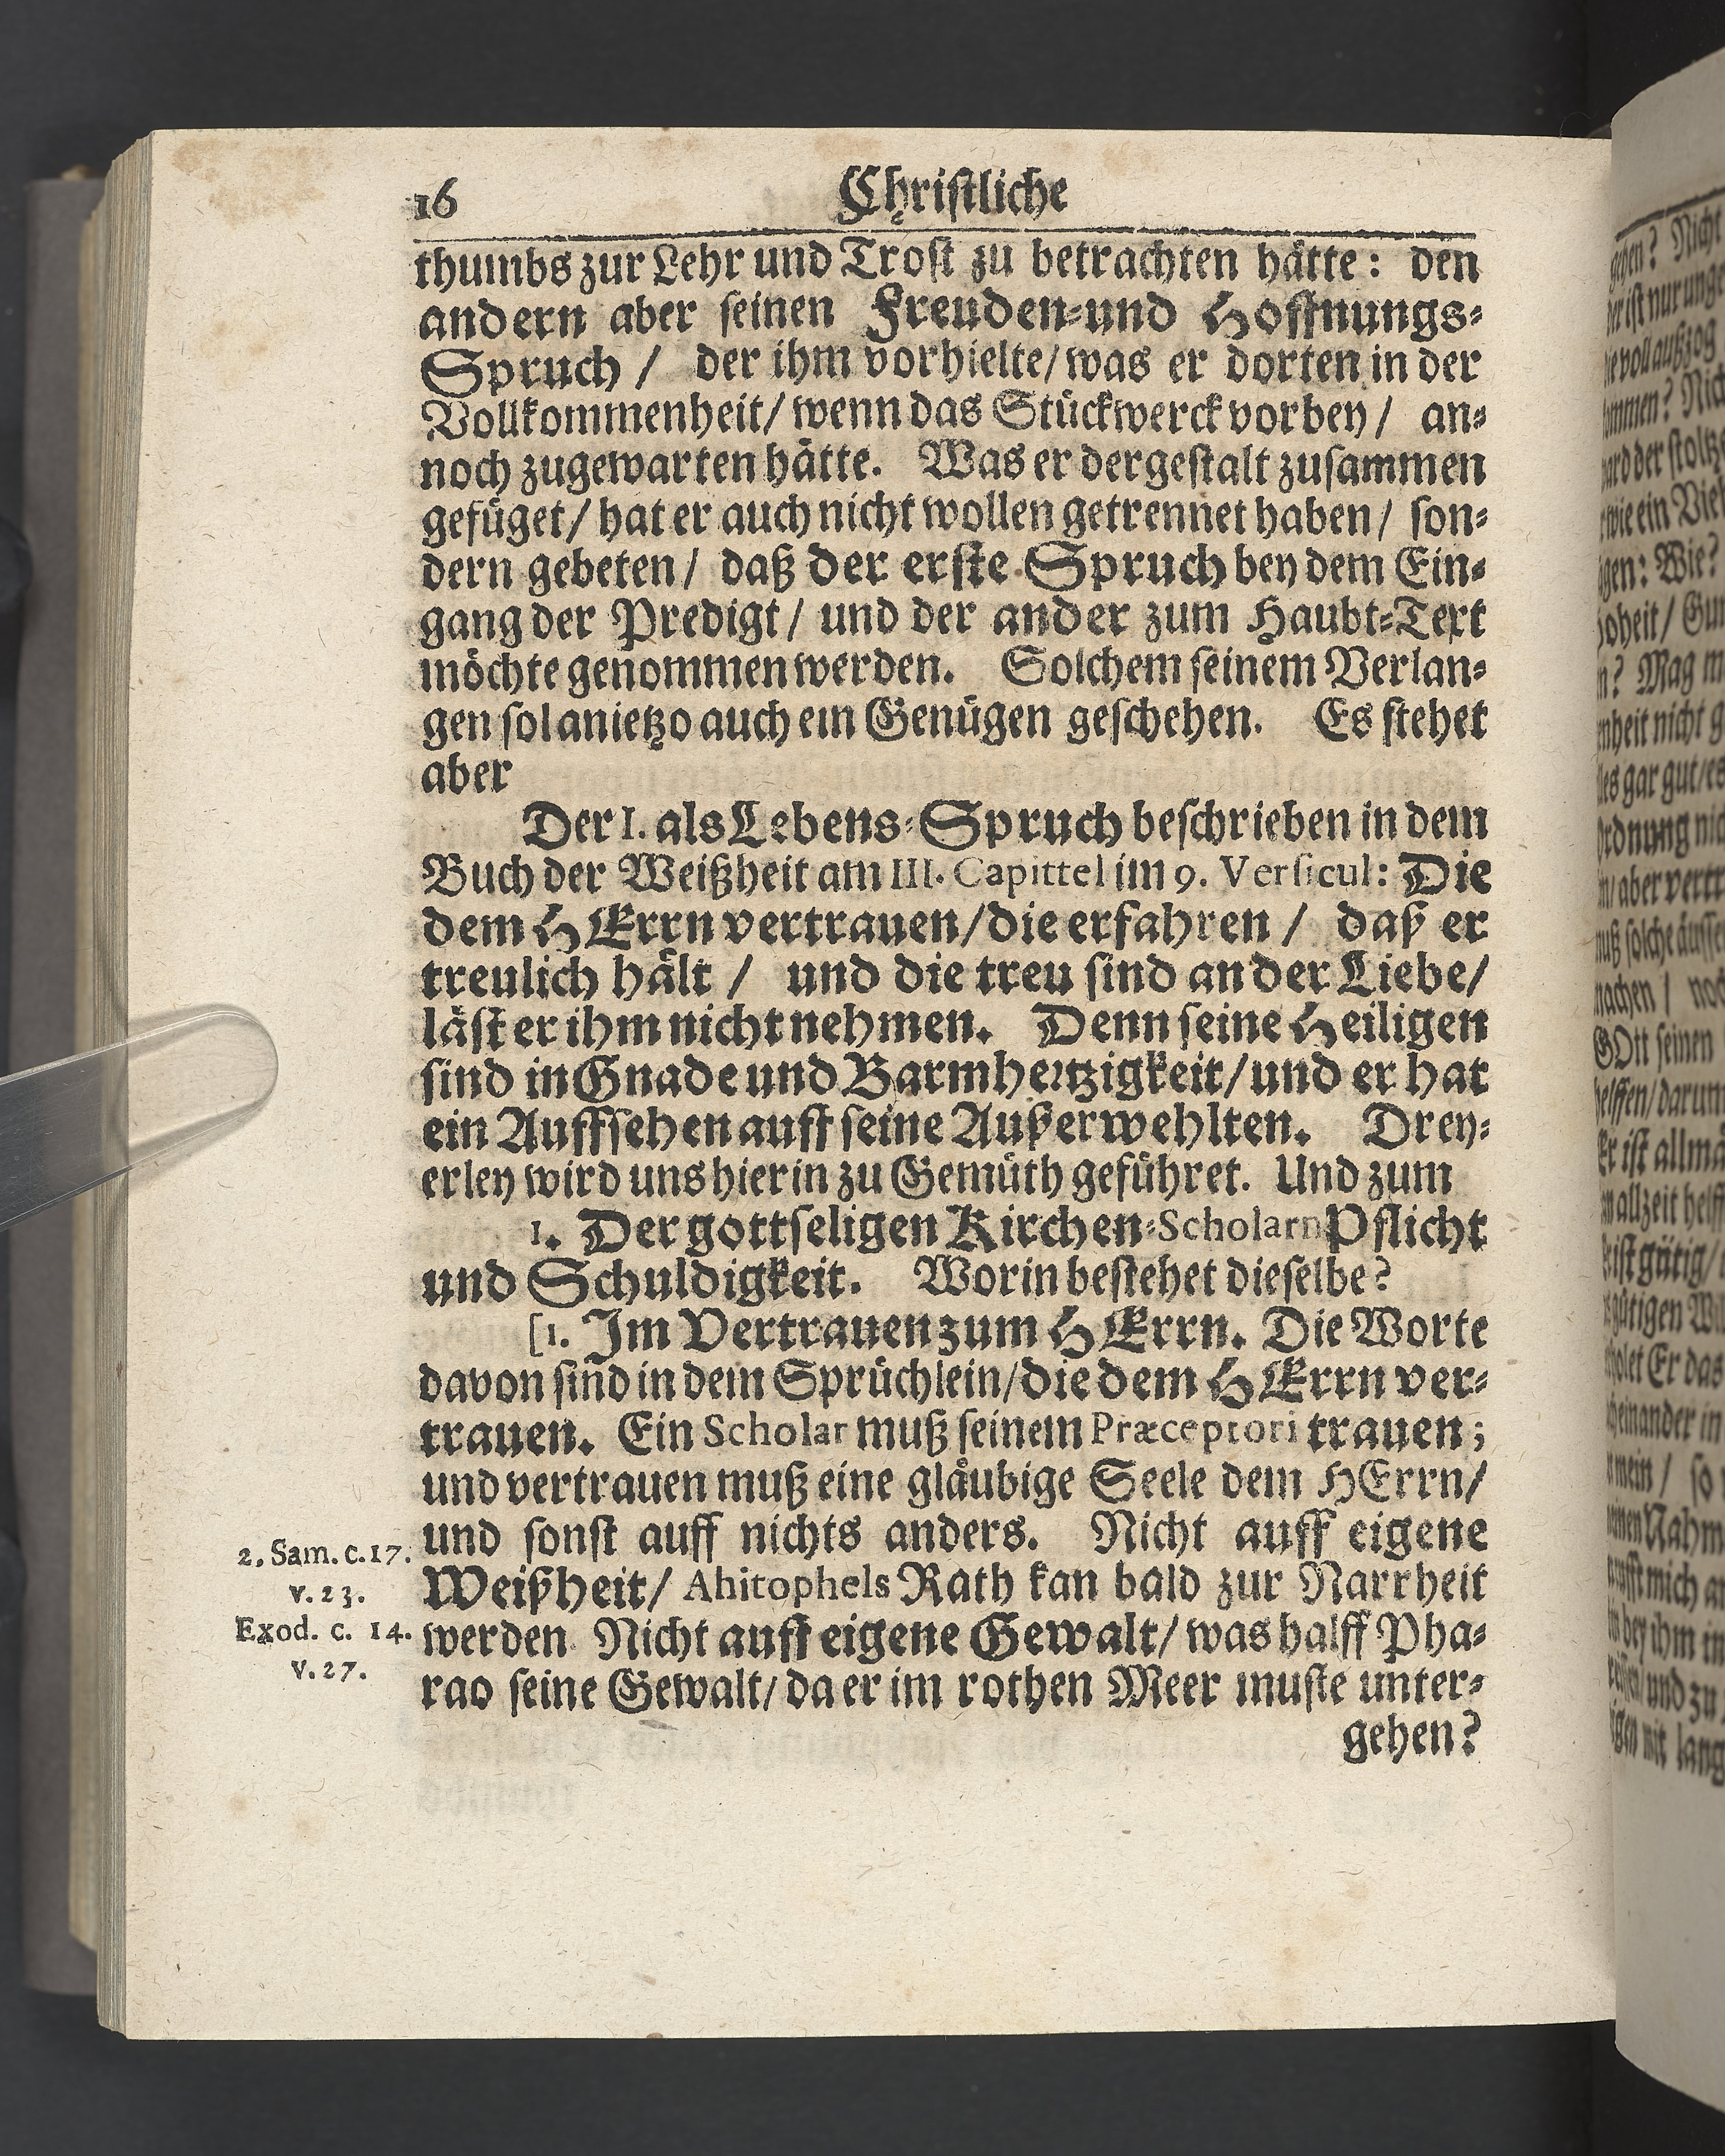 16 Christliche
thumbs zur Lehr und Trost zu betrachten hätte: den
andern aber seinen Freuden-und Hoffnungs-
Spruch / der ihm vorhielte/ was er dorten in der
Vollkommenheit/ wenn das Stückwerck vorbey / an-
noch zugewarten hätte. Was er dergestalt zusammen
gefüget/ hat er auch nicht wollen getrennet haben/ son-
dern gebeten/ daß der erste Spruch bey dem Ein-
gang der Predigt / und der ander zum Haubt-Text
möchte genommen werden. Solchem seinem Verlan-
gen sol anietzo auch ein Genügen geschehen. Es stehet
aber
Der I. als Lebens-Spruch beschrieben in dem
Buch der Weißheit am III. Capittel im 9. Versicul: Die
dem HErrn vertrauen/ die erfahren / daß er
treulich hält / und die treu sind an der Liebe/
läst er ihm nicht nehmen. Denn seine Heiligen
sind in Gnade und Barmhertzigkeit/ und er hat
ein Auffsehen auff seine Außerwehlten. Drey-
erley wird uns hierin zu Gemüth geführet. Und zum
1. Der gottseligen Kirchen-Scholarn Pflicht
und Schuldigkeit. Worin bestehet dieselbe?
[1. Im Vertrauen zum HErrn. Die Worte
davon sind in dem Sprüchlein/ die dem HErrn ver-
trauen. Ein Scholar muß seinem Præceptori trauen;
und vertrauen muß eine gläubige Seele dem HErrn/
und sonst auff nichts anders. Nicht auff eigene
2. Sam. c. 17.
v. 23.
Weißheit/ Ahitophels Rath kan bald zur Narrheit
Exod. c. 14.
v. 27.
werden Nicht auff eigene Gewalt/ was halff Pha-
rao seine Gewalt/ da er im rothen Meer muste unter-
gehen?